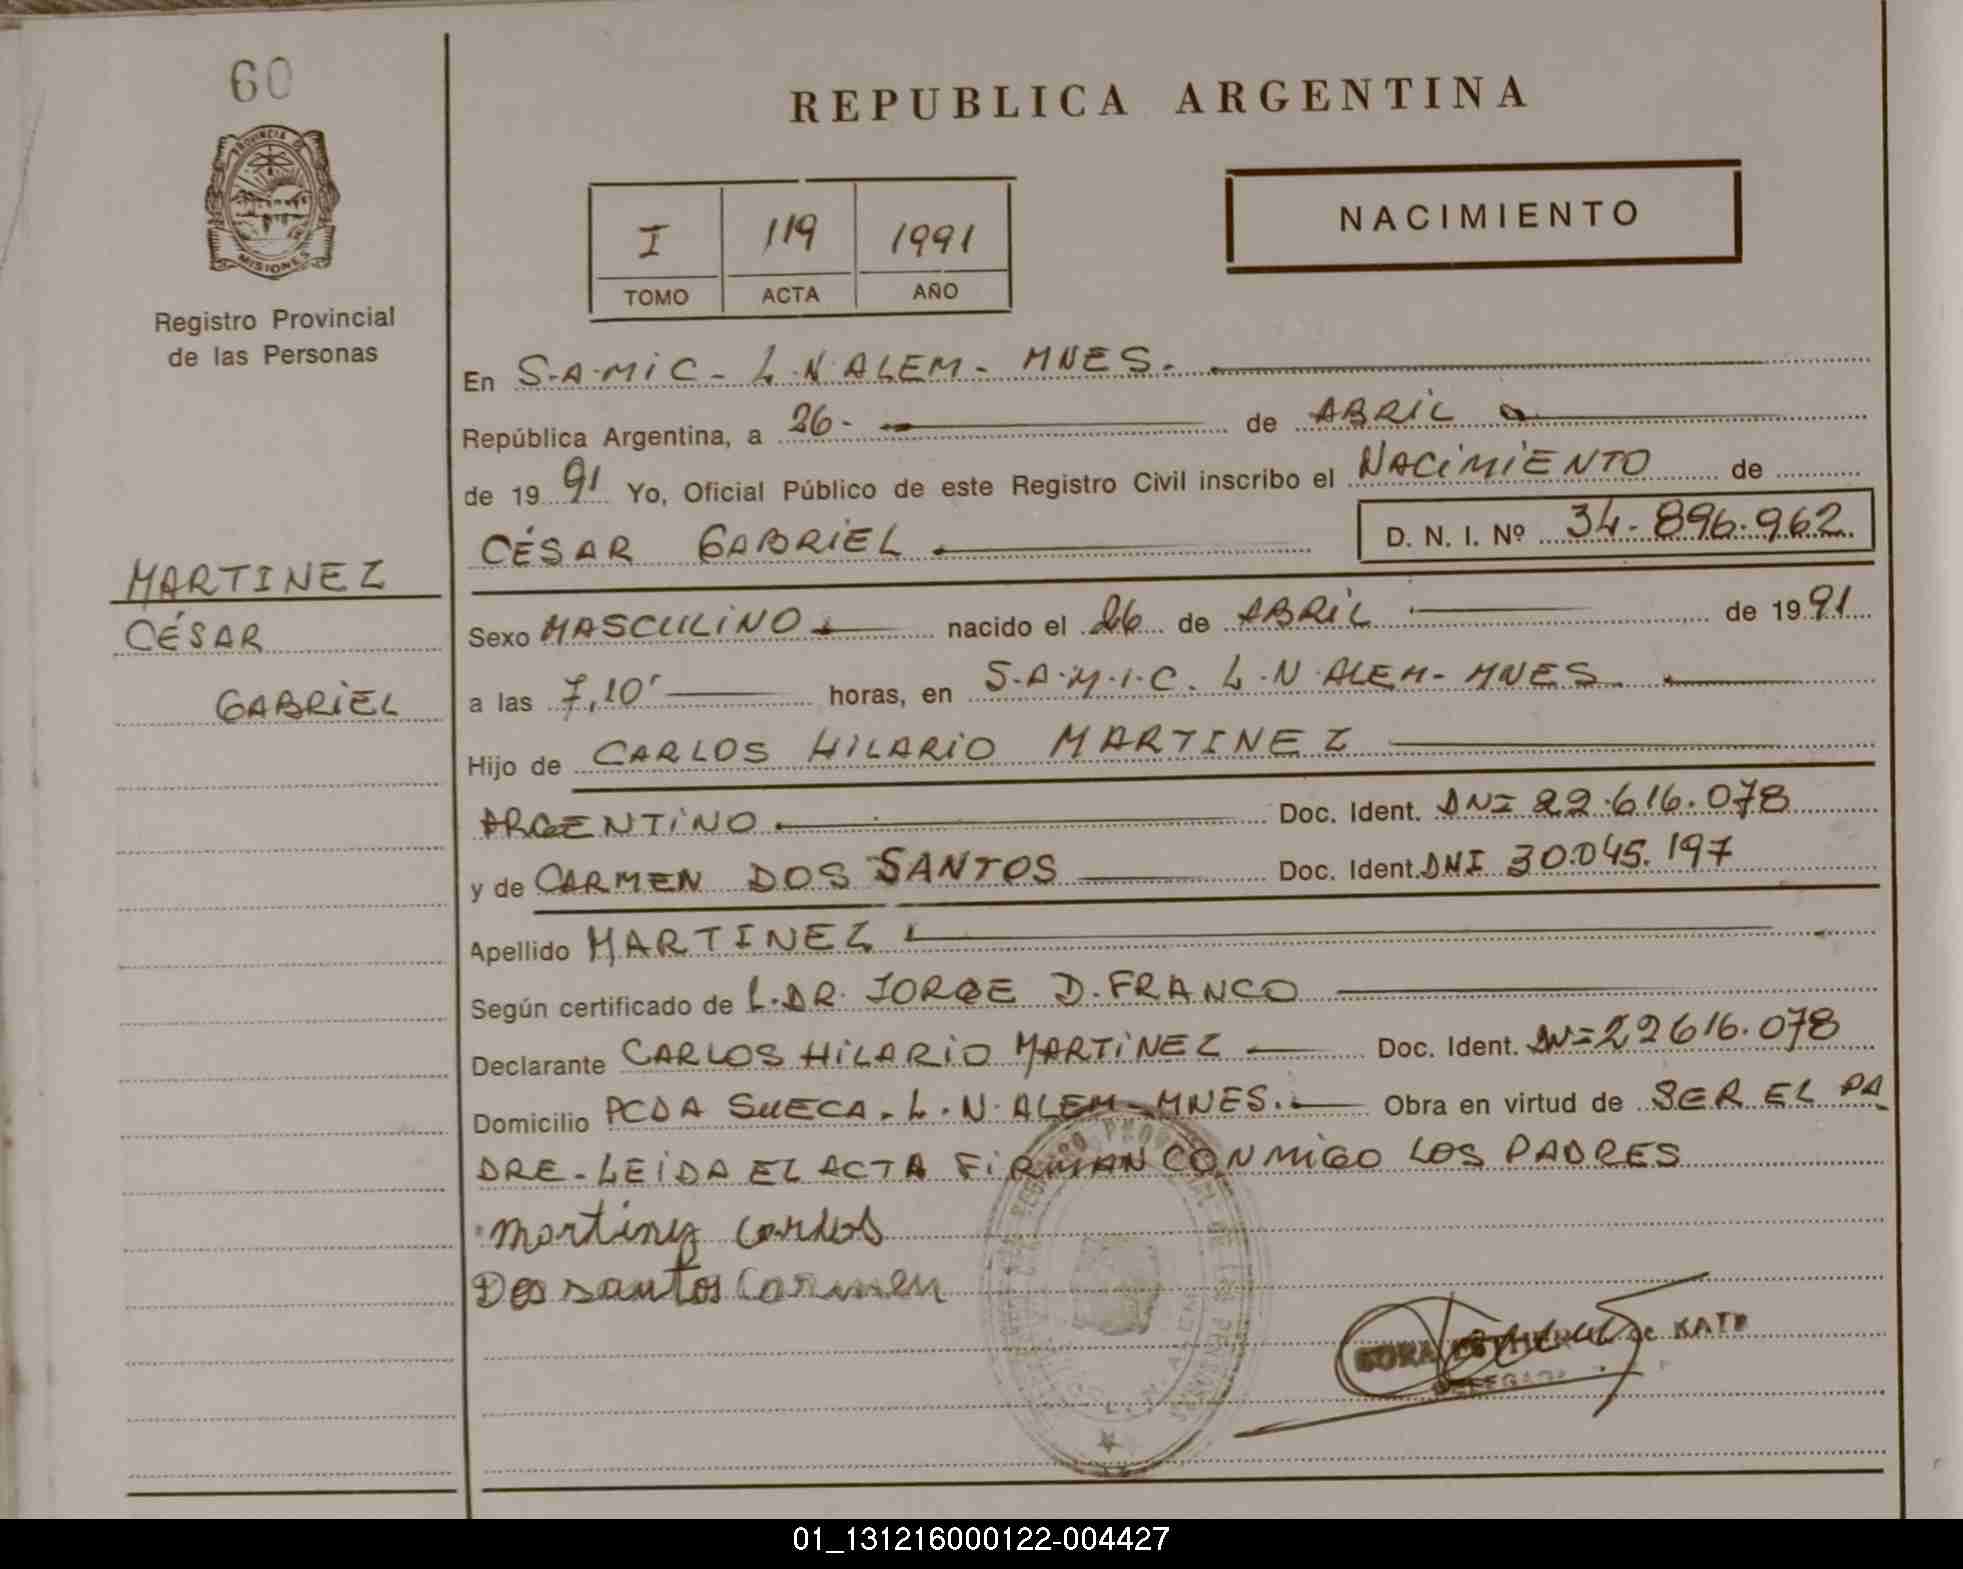 60
PROVINCIA DE
MISIONES
Registro Provincial
de las Personas
MARTINEZ
CÉSAR
GABRIEL
REPUBLICA ARGENTINA
I 119 1991
TOMO ACTA AÑO
NACIMIENTO
En S.A.MiC - L.N.ALEM - MNES.
República Argentina, a 26- de ABRiL
de 1991 Yo, Oficial Público de este Registro Civil inscribo el NACiMiENTO de
CÉSAR GABRiEL D. N. I. Nº 34-896.962.
Sexo MASCULiNO nacido el 26 de ABRiL de 1991
a las 7,10' horas, en S.A.M.I.C. L.N.ALEM-MNES
Hijo de CARLOS HiLARiO MARTINEZ
ARGENTiNO Doc. Ident. DNI 22.616.078
y de CARMEN DOS SANTOS Doc. Ident. DNI 30.045.197
Apellido MARTINEZ
Según certificado de L.DR. JORGE D. FRANCO
Declarante CARLOS HiLARiO MARTiNEZ Doc. Ident. DNI 22616.078
Domicilio PCDA SUECA. L.N.ALEM-MNES. Obra en virtud de SER EL PA
DRE-LEiDA EL ACTA FiRMAN CONMiGO LOS PADRES
Martinez Carlos
Dos santos Carmen
DELEGADA
01_131216000122-004427